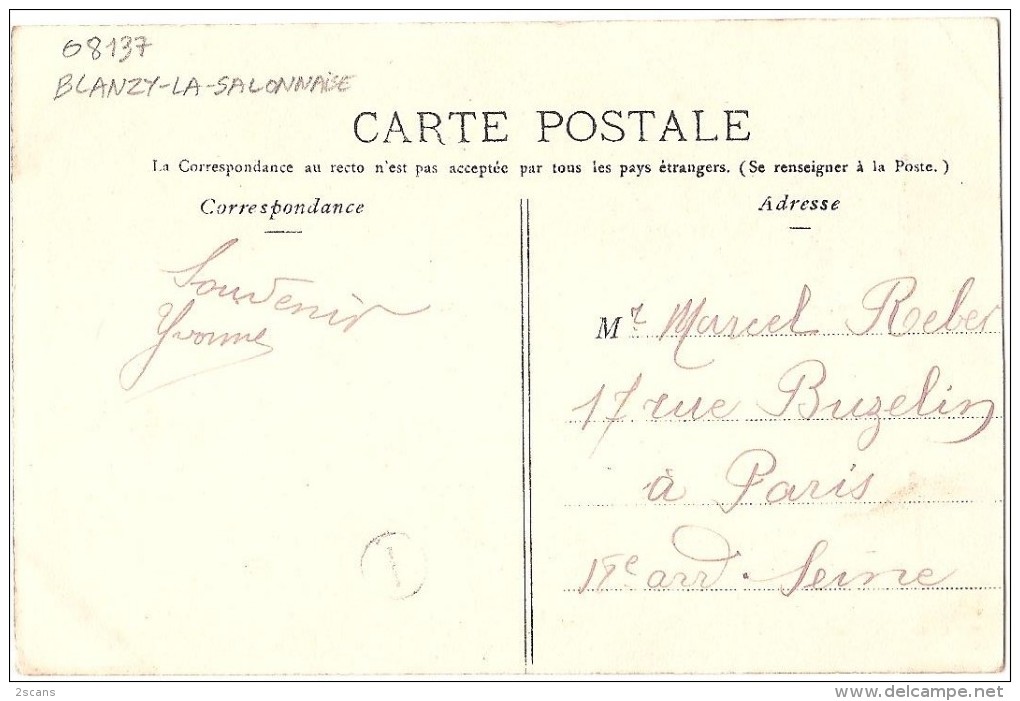 08137
BLANZY-LA-SALONNAISE
CARTE POSTALE
La Correspondance au recto n'est pas acceptée par tous les pays étrangers. (Se renseigner à la Poste.)
Correspondance
Souvenir
Yvonne
Adresse
Mr Marcel Reber
17 rue Buzelin
à Paris
18e arrd. Seine
T
2scans
www.delcampe.net